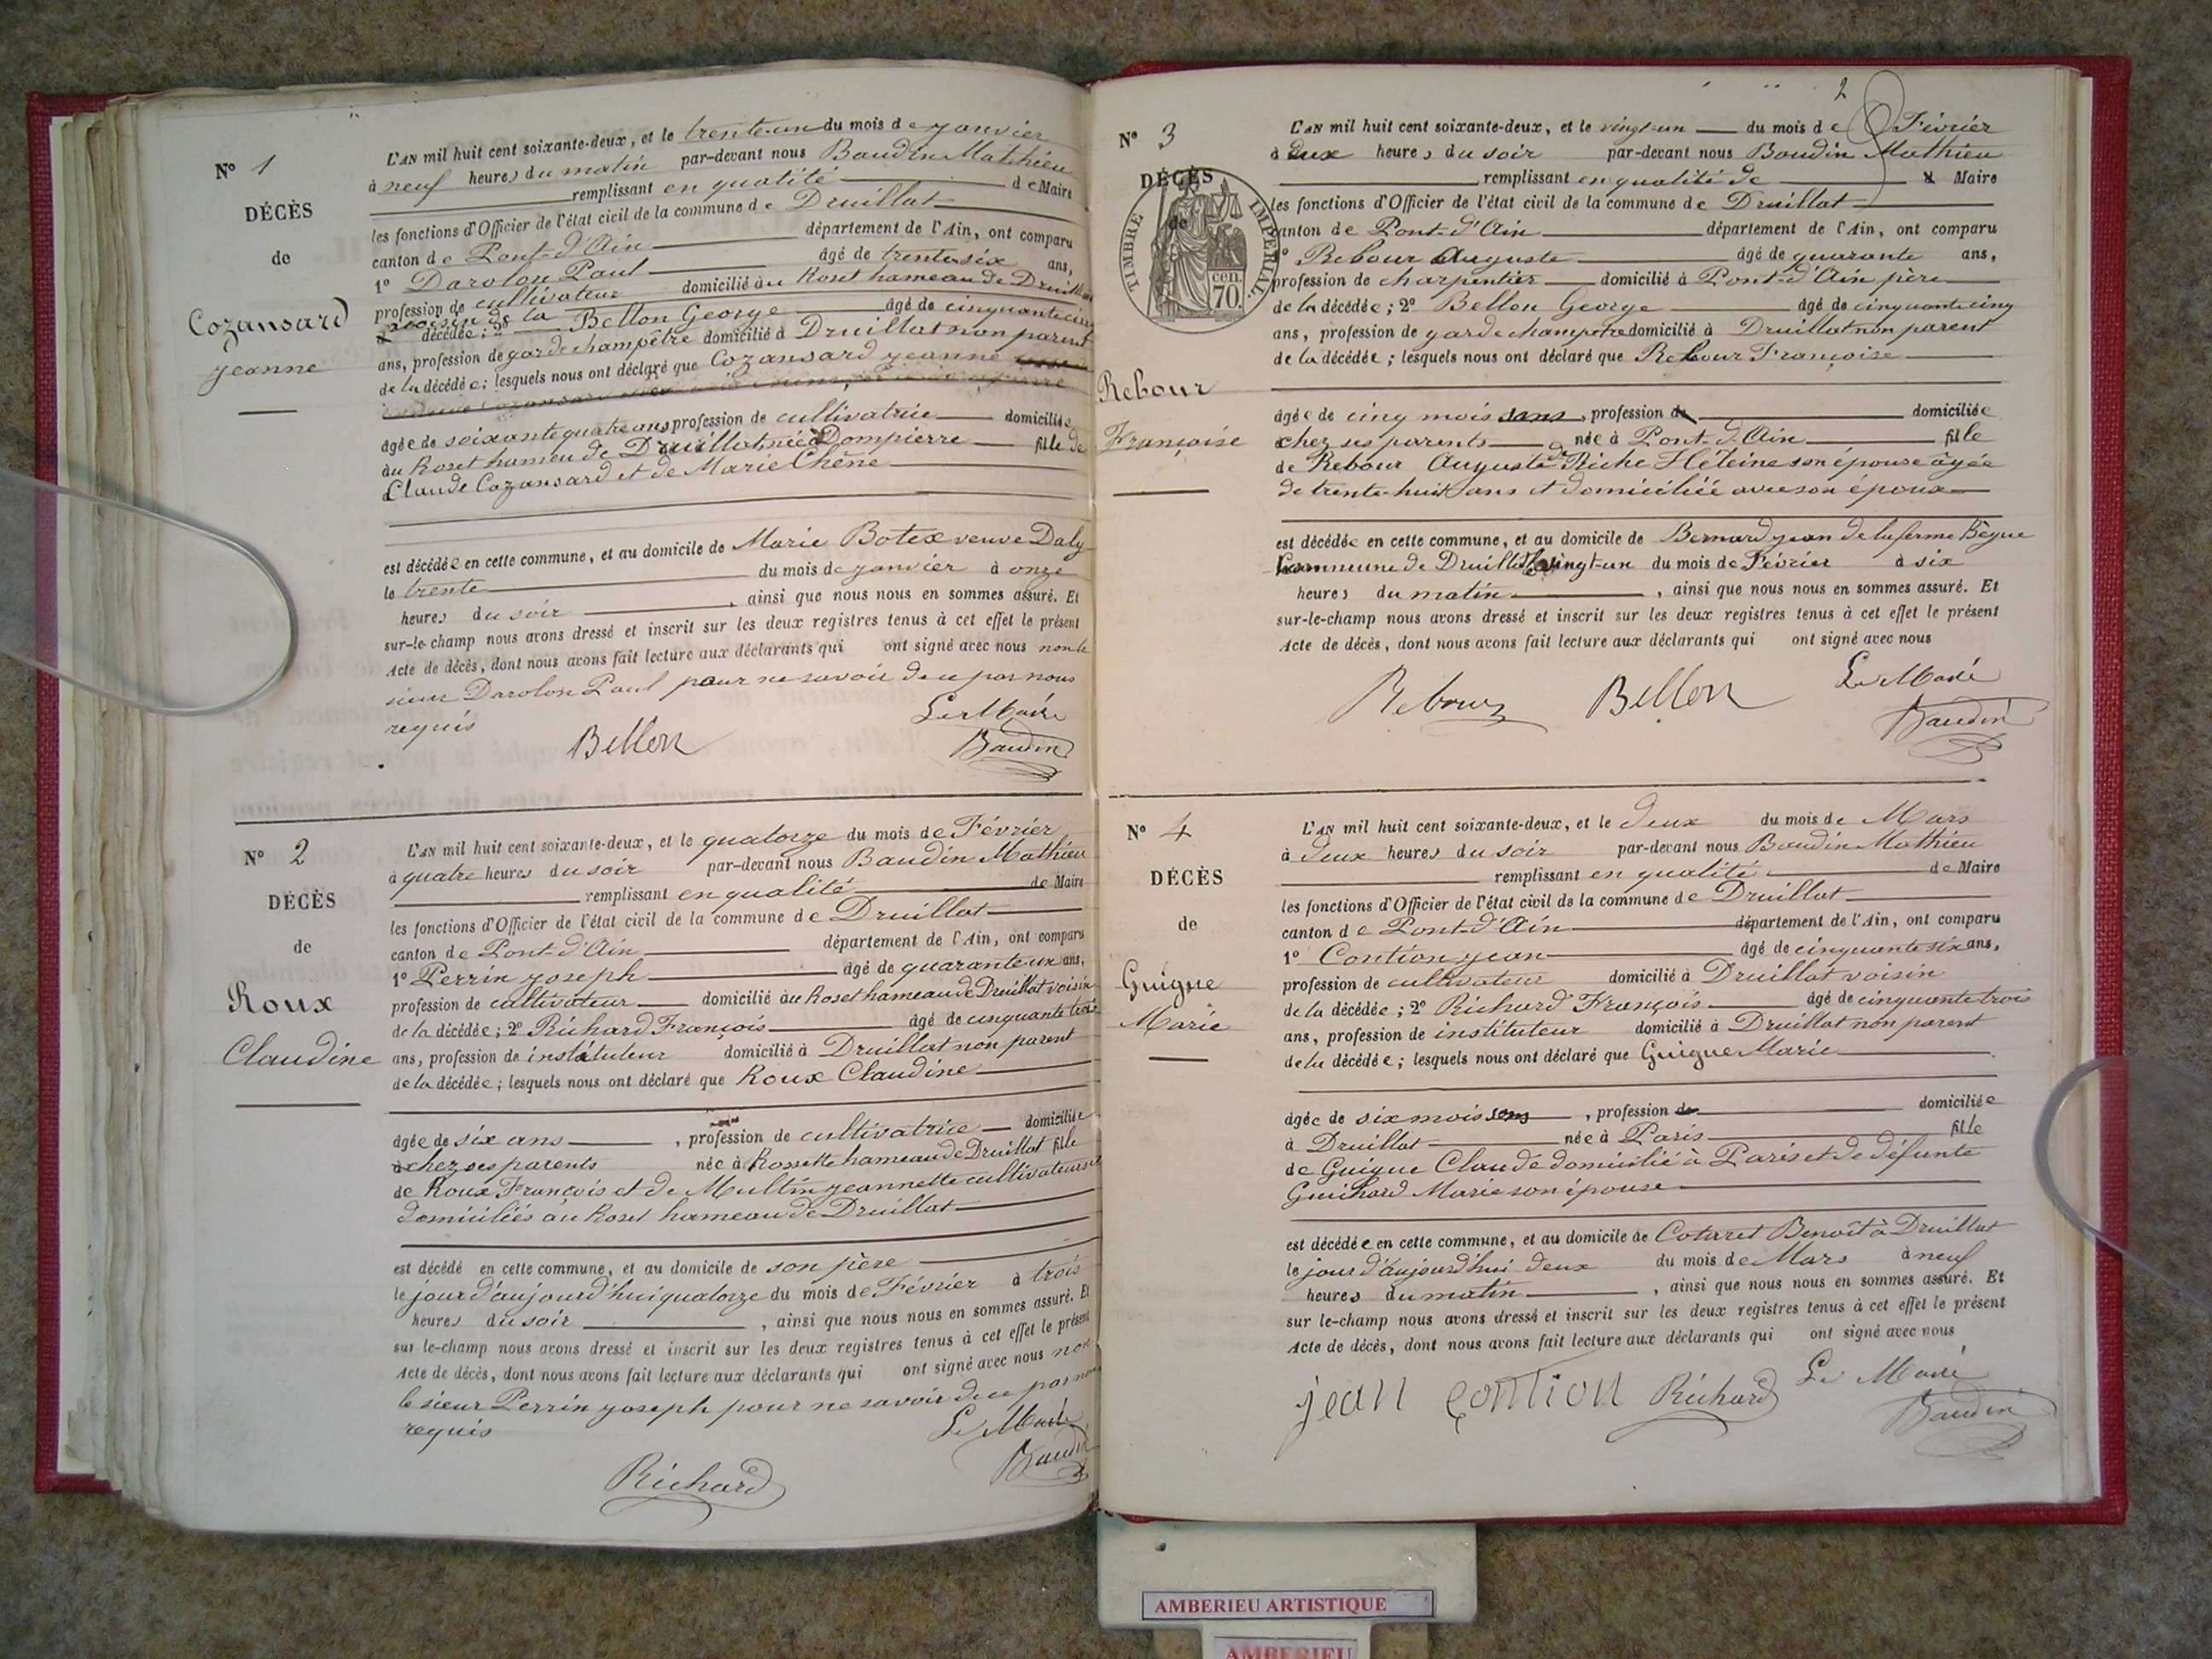 N° 1
DÉCÈS
de
Cozansard
jeanne
L'AN mil huit cent soixante-deux, et le trente-un du mois de janvier
à neuf heures du matin par-devant nous Baudin Mathieu
remplissant en qualité de Maire
les fonctions d'Officier de l'état civil de la commune de Druillat
canton de Pont-d'Ain département de l'Ain, ont comparu
1° Darolon Paul âgé de trente six ans,
profession de cultivateur domicilié au Roset hameau de Druillat
voisin de la décédée; 2° Bellon George âgé de cinquante cinq
ans, profession de garde champêtre domicilié à Druillat non parent
de la décédée; lesquels nous ont déclaré que Cozansard jeanne
âgée de soixante quatre ans profession de cultivatrice domiciliée
au Roset hameu de Druillat née à Dompierre fille de
Claude Cozansard et de Marie Chêne
est décédée en cette commune, et au domicile de Marie Botex veuve Daly
le trente du mois de janvier à onze
heures du soir, ainsi que nous nous en sommes assuré. Et
sur-le-champ nous avons dressé et inscrit sur les deux registres tenus à cet effet le présent
Acte de décès, dont nous avons fait lecture aux déclarants qui ont signé avec nous non le
sieur Darolon Paul pour ne savoir de ce par nous
requis
Le Maire
Bellon
Baudin
N° 2
DÉCÈS
de
Roux
Claudine
L'AN mil huit cent soixante-deux, et le quatorze du mois de Février
à quatre heures du soir par-devant nous Baudin Mathieu
remplissant en qualité de Maire
les fonctions d'Officier de l'état civil de la commune de Druillat
canton de Pont-d'Ain département de l'Ain, ont comparu
1° Perrin joseph âgé de quarante ux ans,
profession de cultivateur domicilié au Roset hameau de Druillat voisin
de la décédée; 2° Richard François âgé de cinquante trois
ans, profession de instituteur domicilié à Druillat non parent
de la décédée; lesquels nous ont déclaré que Roux Claudine
âgée de six ans, profession de cultivatrice domiciliée
chez ses parents née à Rossette hameau de Druillat fille
de Roux François et de Multin jeannette cultivateurs et
domiciliés au Roset hameau de Druillat
est décédé en cette commune, et au domicile de son père
le jour d'aujourd'hui quatorze du mois de Février à trois
heures du soir, ainsi que nous nous en sommes assuré. Et
sur le-champ nous avons dressé et inscrit sur les deux registres tenus à cet effet le présent
Acte de décès, dont nous avons fait lecture aux déclarants qui ont signé avec nous non
le sieur Perrin joseph pour ne savoir de ce par nous
requis
Le Maire
Richard
Baudin
2
N° 3
DÉCÈS
de
TIMBRE IMPERIAL
cen
70.
Rebour
Françoise
L'AN mil huit cent soixante-deux, et le vingt-un du mois de Février
à deux heures du soir par-devant nous Baudin Mathieu
remplissant en qualité de Maire
les fonctions d'Officier de l'état civil de la commune de Druillat
canton de Pont-d'Ain département de l'Ain, ont comparu
1° Rebour Auguste âgé de quarante ans,
profession de charpentier domicilié à Pont-d'Ain père
de la décédée; 2° Bellon George âgé de cinquante cinq
ans, profession de garde champetre domicilié à Druillat non parent
de la décédée; lesquels nous ont déclaré que Rebour Françoise
âgée de cinq mois ans, profession de domiciliée
chez ses parents née à Pont-d'Ain fille
de Rebour Auguste et Riche Héleine son épouse âgée
de trente-huit ans et domiciliée avec son époux
est décédée en cette commune, et au domicile de Bernard jean de la ferme Bègue
Commune de Druillat le vingt-un du mois de Février à six
heures du matin, ainsi que nous nous en sommes assuré. Et
sur-le-champ nous avons dressé et inscrit sur les deux registres tenus à cet effet le présent
Acte de décès, dont nous avons fait lecture aux déclarants qui ont signé avec nous
Rebour Bellon Le Maire
Baudin
N° 4
DÉCÈS
de
Guigue
Marie
L'AN mil huit cent soixante-deux, et le deux du mois de Mars
à deux heures du soir par-devant nous Baudin Mathieu
remplissant en qualité de Maire
les fonctions d'Officier de l'état civil de la commune de Druillat
canton de Pont-d'Ain département de l'Ain, ont comparu
1° Contion jean âgé de cinquante six ans,
profession de cultivateur domicilié à Druillat voisin
de la décédée; 2° Richard François âgé de cinquante trois
ans, profession de instituteur domicilié à Druillat non parent
de la décédée; lesquels nous ont déclaré que Guigue Marie
âgée de six mois ans, profession de domiciliée
à Druillat née à Paris fille
de Guigue Claude domicilié à Paris et de défunte
Guichard Marie son épouse
est décédée en cette commune, et au domicile de Cotaret Benoît à Druillat
le jour d'aujourd'hui deux du mois de Mars à neuf
heures du matin, ainsi que nous nous en sommes assuré. Et
sur le-champ nous avons dressé et inscrit sur les deux registres tenus à cet effet le présent
Acte de décès, dont nous avons fait lecture aux déclarants qui ont signé avec nous
jean contion Richard Le Maire
Baudin
AMBERIEU ARTISTIQUE
AMBERIEU